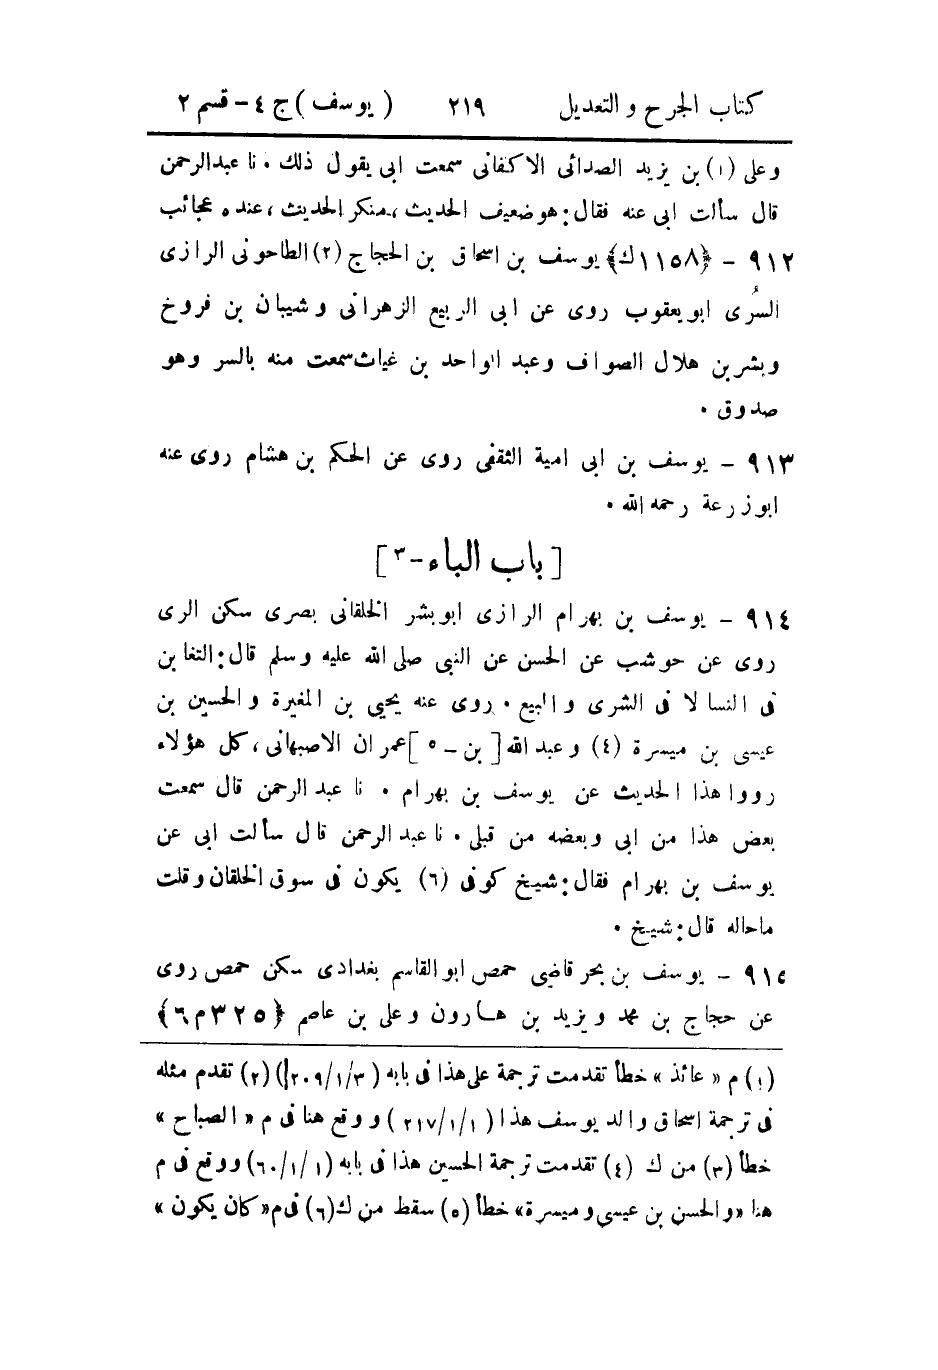 كتاب الجرح والتعديل ٢١٩ (يوسف) ج ٤ - قسم ٢
وعلى (١) بن يزيد الصدائى الاكفانى سمعت ابى يقول ذلك . نا عبدالرحمن
قال سألت ابى عنه فقال: هو ضعيف الحديث ، منكر الحديث ، عنده عجائب
٩١٢ - {١١٥٨ك} يوسف بن اسحاق بن الحجاج (٢) الطاحونى الرازى
السُرى ابو يعقوب روى عن ابى الربيع الزهرانى وشيبان بن فروخ
وبشر بن هلال الصواف وعبد الواحد بن غياث سمعت منه بالسر وهو
صدوق .
٩١٣ - يوسف بن ابى امية الثقفى روى عن الحكم بن هشام روى عنه
ابو زرعة رحمه الله .
[باب الباء - ٣]
٩١٤ - يوسف بن بهرام الرازى ابو بشر الخلقانى بصرى سكن الرى
روى عن حوشب عن الحسن عن النبى صلى الله عليه وسلم قال: التغابن
فى النسا لا فى الشرى والبيع . روى عنه يحيى بن المغيرة والحسين بن
عيسى بن ميسرة (٤) وعبد الله [بن - ٥] عمران الاصبهانى ، كل هؤلاء
رووا هذا الحديث عن يوسف بن بهرام . نا عبد الرحمن قال سمعت
بعض هذا من ابى وبعضه من قبلى . نا عبد الرحمن قال سألت ابى عن
يوسف بن بهرام فقال: شيخ كوفى (٦) يكون فى سوق الخلقان وقلت
ماحاله قال: شيخ .
٩١٥ - يوسف بن بحر قاضى حمص ابو القاسم بغدادى سكن حمص روى
عن حجاج بن محمد ويزيد بن هارون وعلى بن عاصم {٣٢٥م٦}
(١) م « عائذ » خطأ تقدمت ترجمة على هذا فى بابه (٢٠٩/١/٣) (٢) تقدم مثله
فى ترجمة اسحاق والد يوسف هذا (٢١٧/١/١) ووقع هنا فى م « الصباح »
خطأ (٣) من ك (٤) تقدمت ترجمة الحسين هذا فى بابه (٦٠/١/١) ووقع فى م
هنا « والحسن بن عيسى وميسرة » خطأ (٥) سقط من ك (٦) فى م « كان يكون »